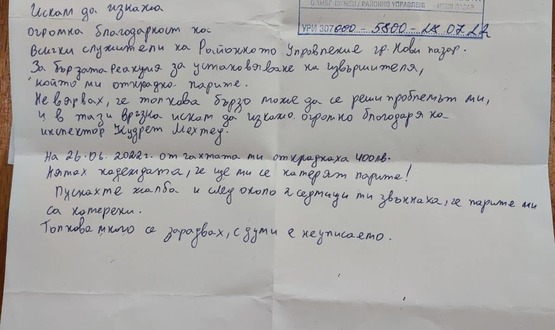 РАЙОННО УПРАВЛЕНИЕ
УРИ 307000-5800-28.07.22
Искам да изкажа
огромна благодарност на
Всички служители на Районното Управление гр. Нови пазар.
За бързата реакция за установяване на извършителя,
който ми открадна парите.
Не вярвах, че толкова бързо може да се реши проблемът ми,
и в тази връзка искам да изкажа огромно благодаря на
инспектор Кудрет Мехмед.
На 26.06.2022г. от гангта ми откраднаха 400лв.
Нямах надеждата, че ще ми се намерят парите!
Пуснахме жалба и след около 2 седмици ми звъннаха, че парите ми
са намерени.
Толкова много се зарадвах, с думи е неуписаемо.